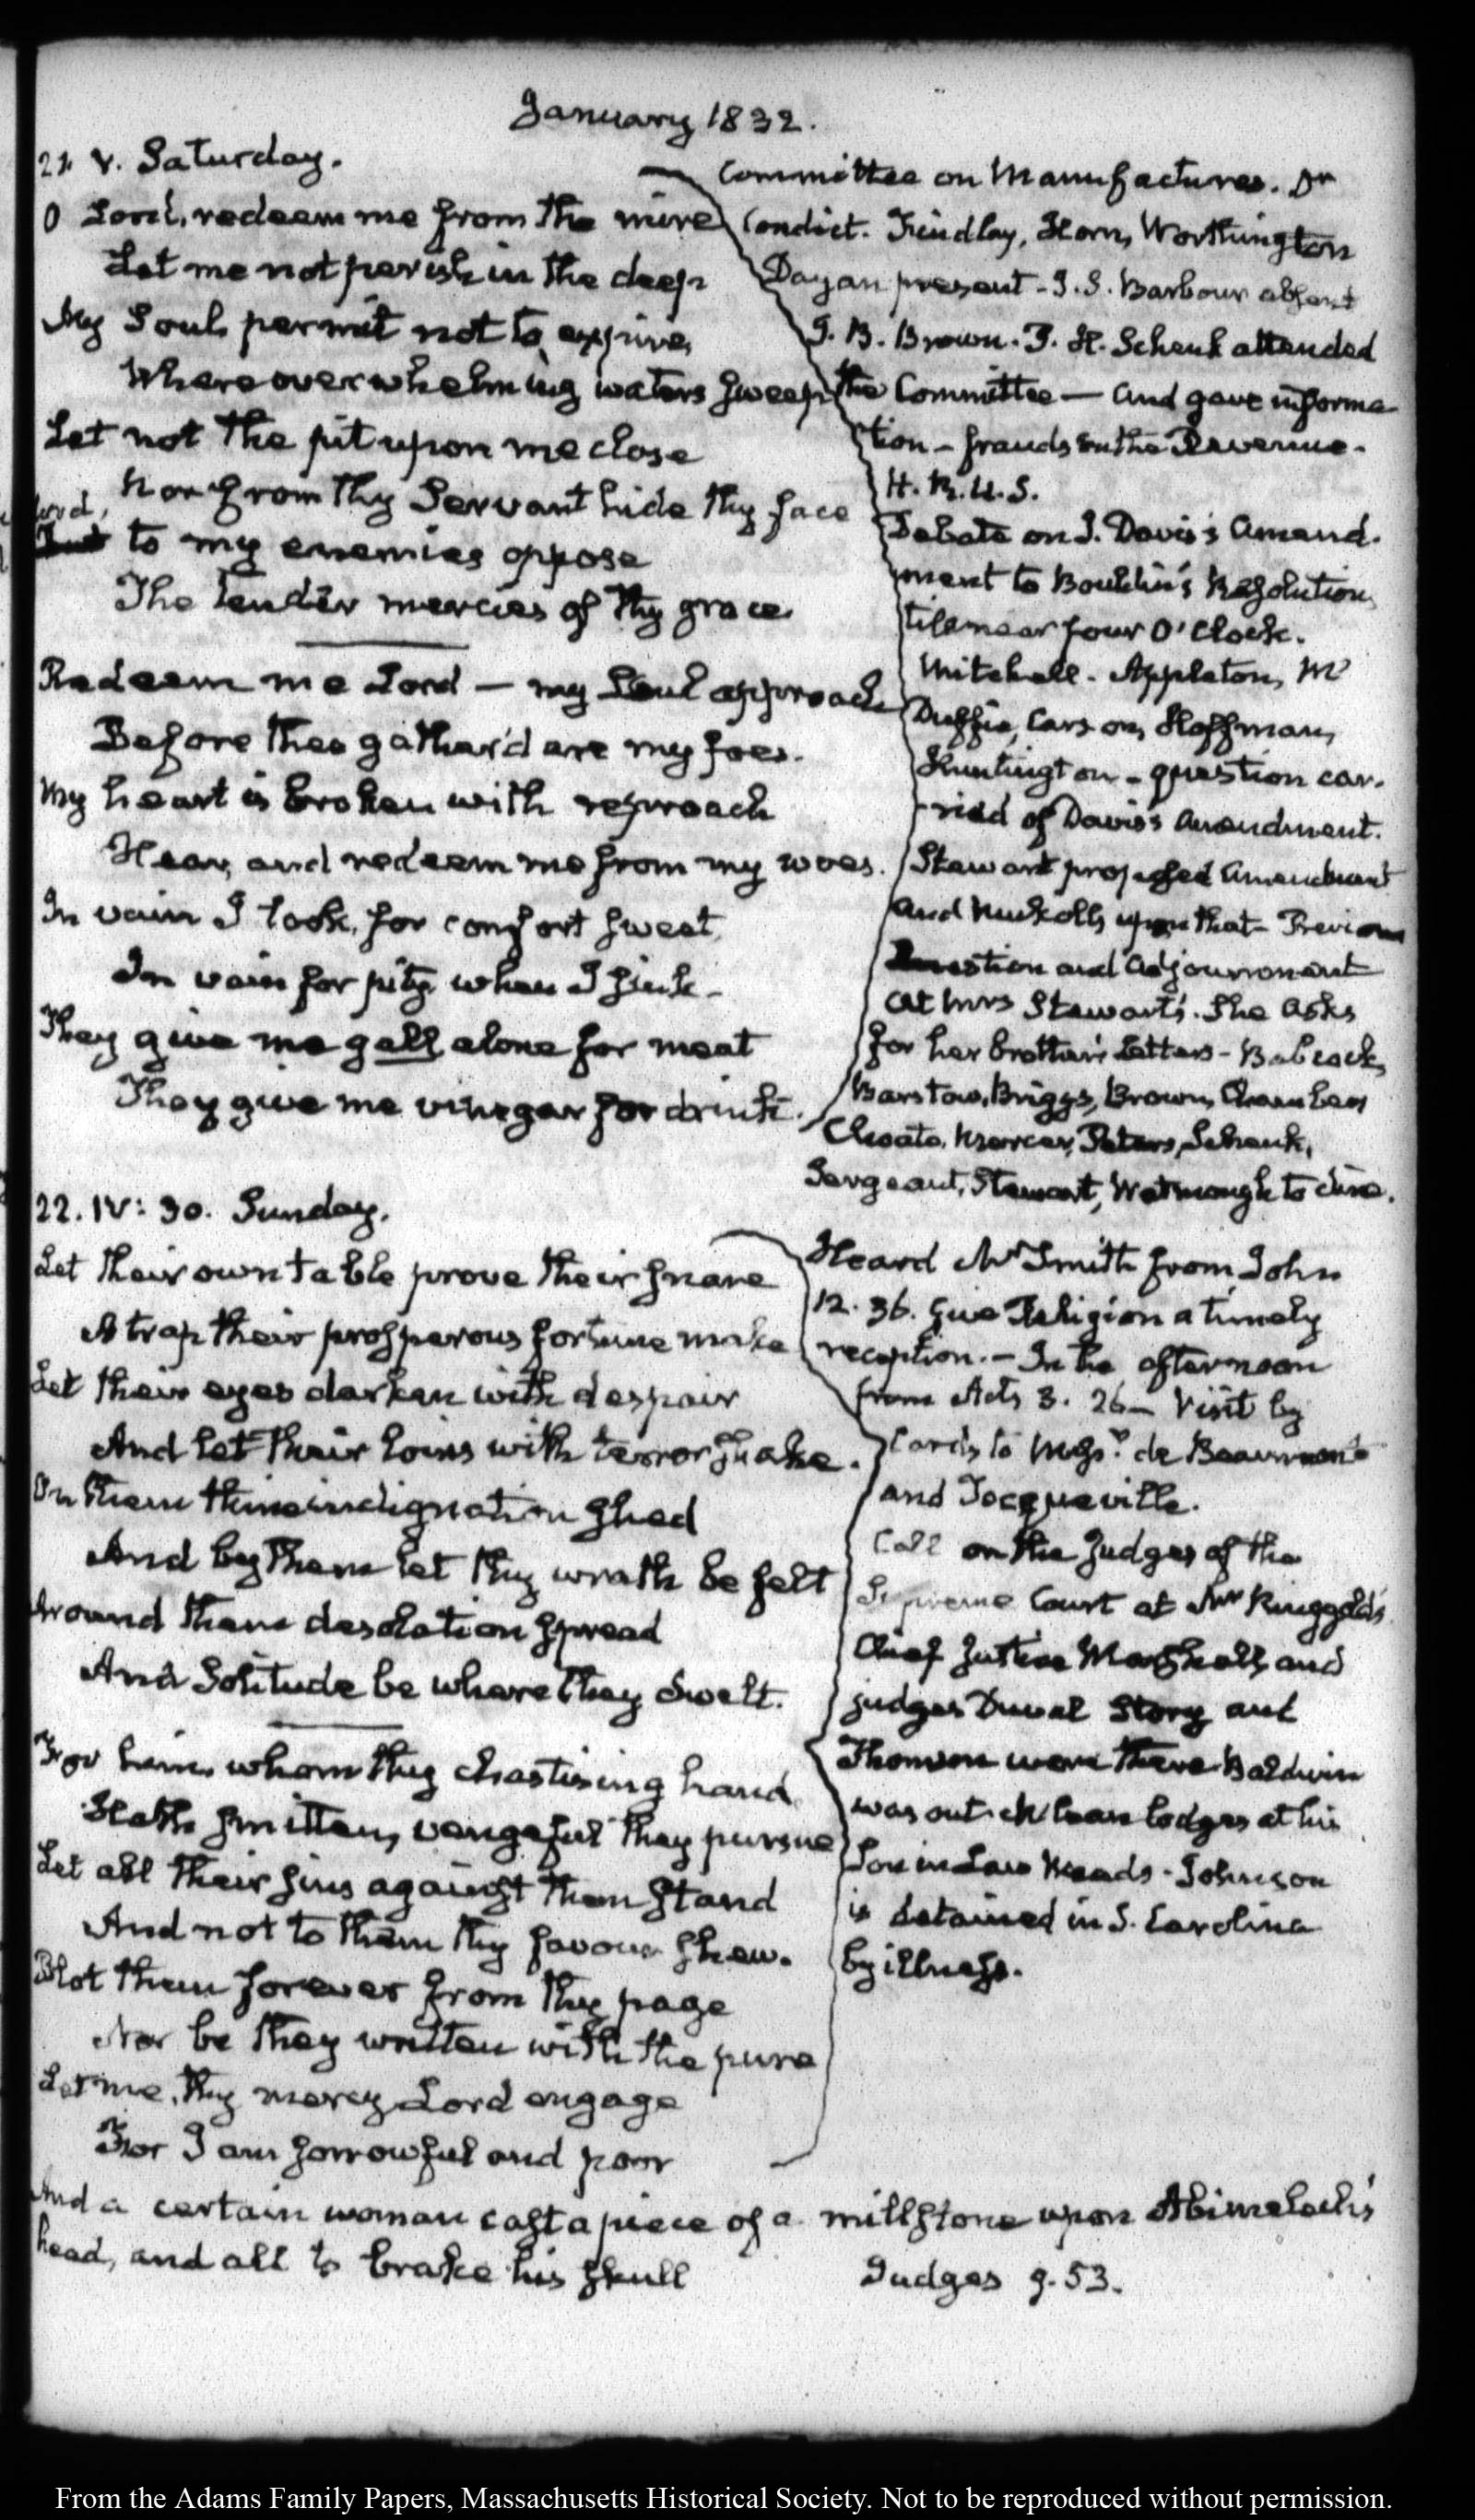 January 1832.
21. V. Saturday.
O Lord, redeem me from the mire
Let me not perish in the deep
My Soul, permit not to expire,
Where overwhelming waters sweep
Let not the pit upon me close
Nor from thy Servant hide thy face
Lord,
But to my enemies oppose
The tender mercies of thy grace.
Redeem me Lord — my Soul approach
Before thee gather'd are my foes.
My heart is broken with reproach
Hear, and redeem me from my woes.
In vain I look, for comfort sweet,
In vain for pity when I sink —
They give me gall alone for meat
They give me vinegar for drink.
Committee on Manufactures. Dr
Condict. Findlay, Horn, Worthington
Dayan present - J. S. Barbour absent
J. B. Brown. F. H. Schenk attended
the Committee — and gave informa
tion - frauds on the Revenue.
H. R. U. S.
Debate on J. Davis's Amend.
ment to Bouldin's Resolution,
till near four O'Clock.
Mitchell. Appleton, Mc
Duffie, Carson, Hoffman,
Huntington - question car.
ried of Davis's Amendment.
Stewart proposed Amendment
and Nuckolls upon that - Previous
Question and adjournment
At Mrs Stewart's. She asks
for her brother's Letters - Babcock,
Barstow, Briggs, Brown, Chamber
Choate, Mercer, Peters, Schenk,
Sergeant, Stewart, Watmough to dine.
22. IV: 30. Sunday.
Let their own table prove their snare
A trap their prosperous fortune make
Let their eyes darken with despair
And let their loins with terror quake.
On them thine indignation shed
And by them let thy wrath be felt
Around them desolation spread
And Solitude be where they dwelt.
For him, whom thy chastising hand
Hath smitten, vengeful they pursue
Let all their sins against them stand
And not to them thy favour shew.
Blot them forever from thy page
Nor be they written with the pure
Let me, thy mercy Lord engage
For I am sorrowful and poor
Heard Mr Smith from John
12. 36. Give Religion a timely
reception. — In the afternoon
from Acts 3. 26 — Visit by
Cards to Messrs. de Beaumont
and Tocqueville.
Call on the Judges of the
Supreme Court at Mr Ringgold's
Chief Justice Marshall, and
judges Duval Story and
Thomson were there. Baldwin
was out. McLean lodges at his
Son in Law Meads - Johnson
is detained in S. Carolina
by illness.
And a certain woman cast a piece of a millstone upon Abimelech's
head, and all to brake his skull Judges 9. 53.
From the Adams Family Papers, Massachusetts Historical Society. Not to be reproduced without permission.